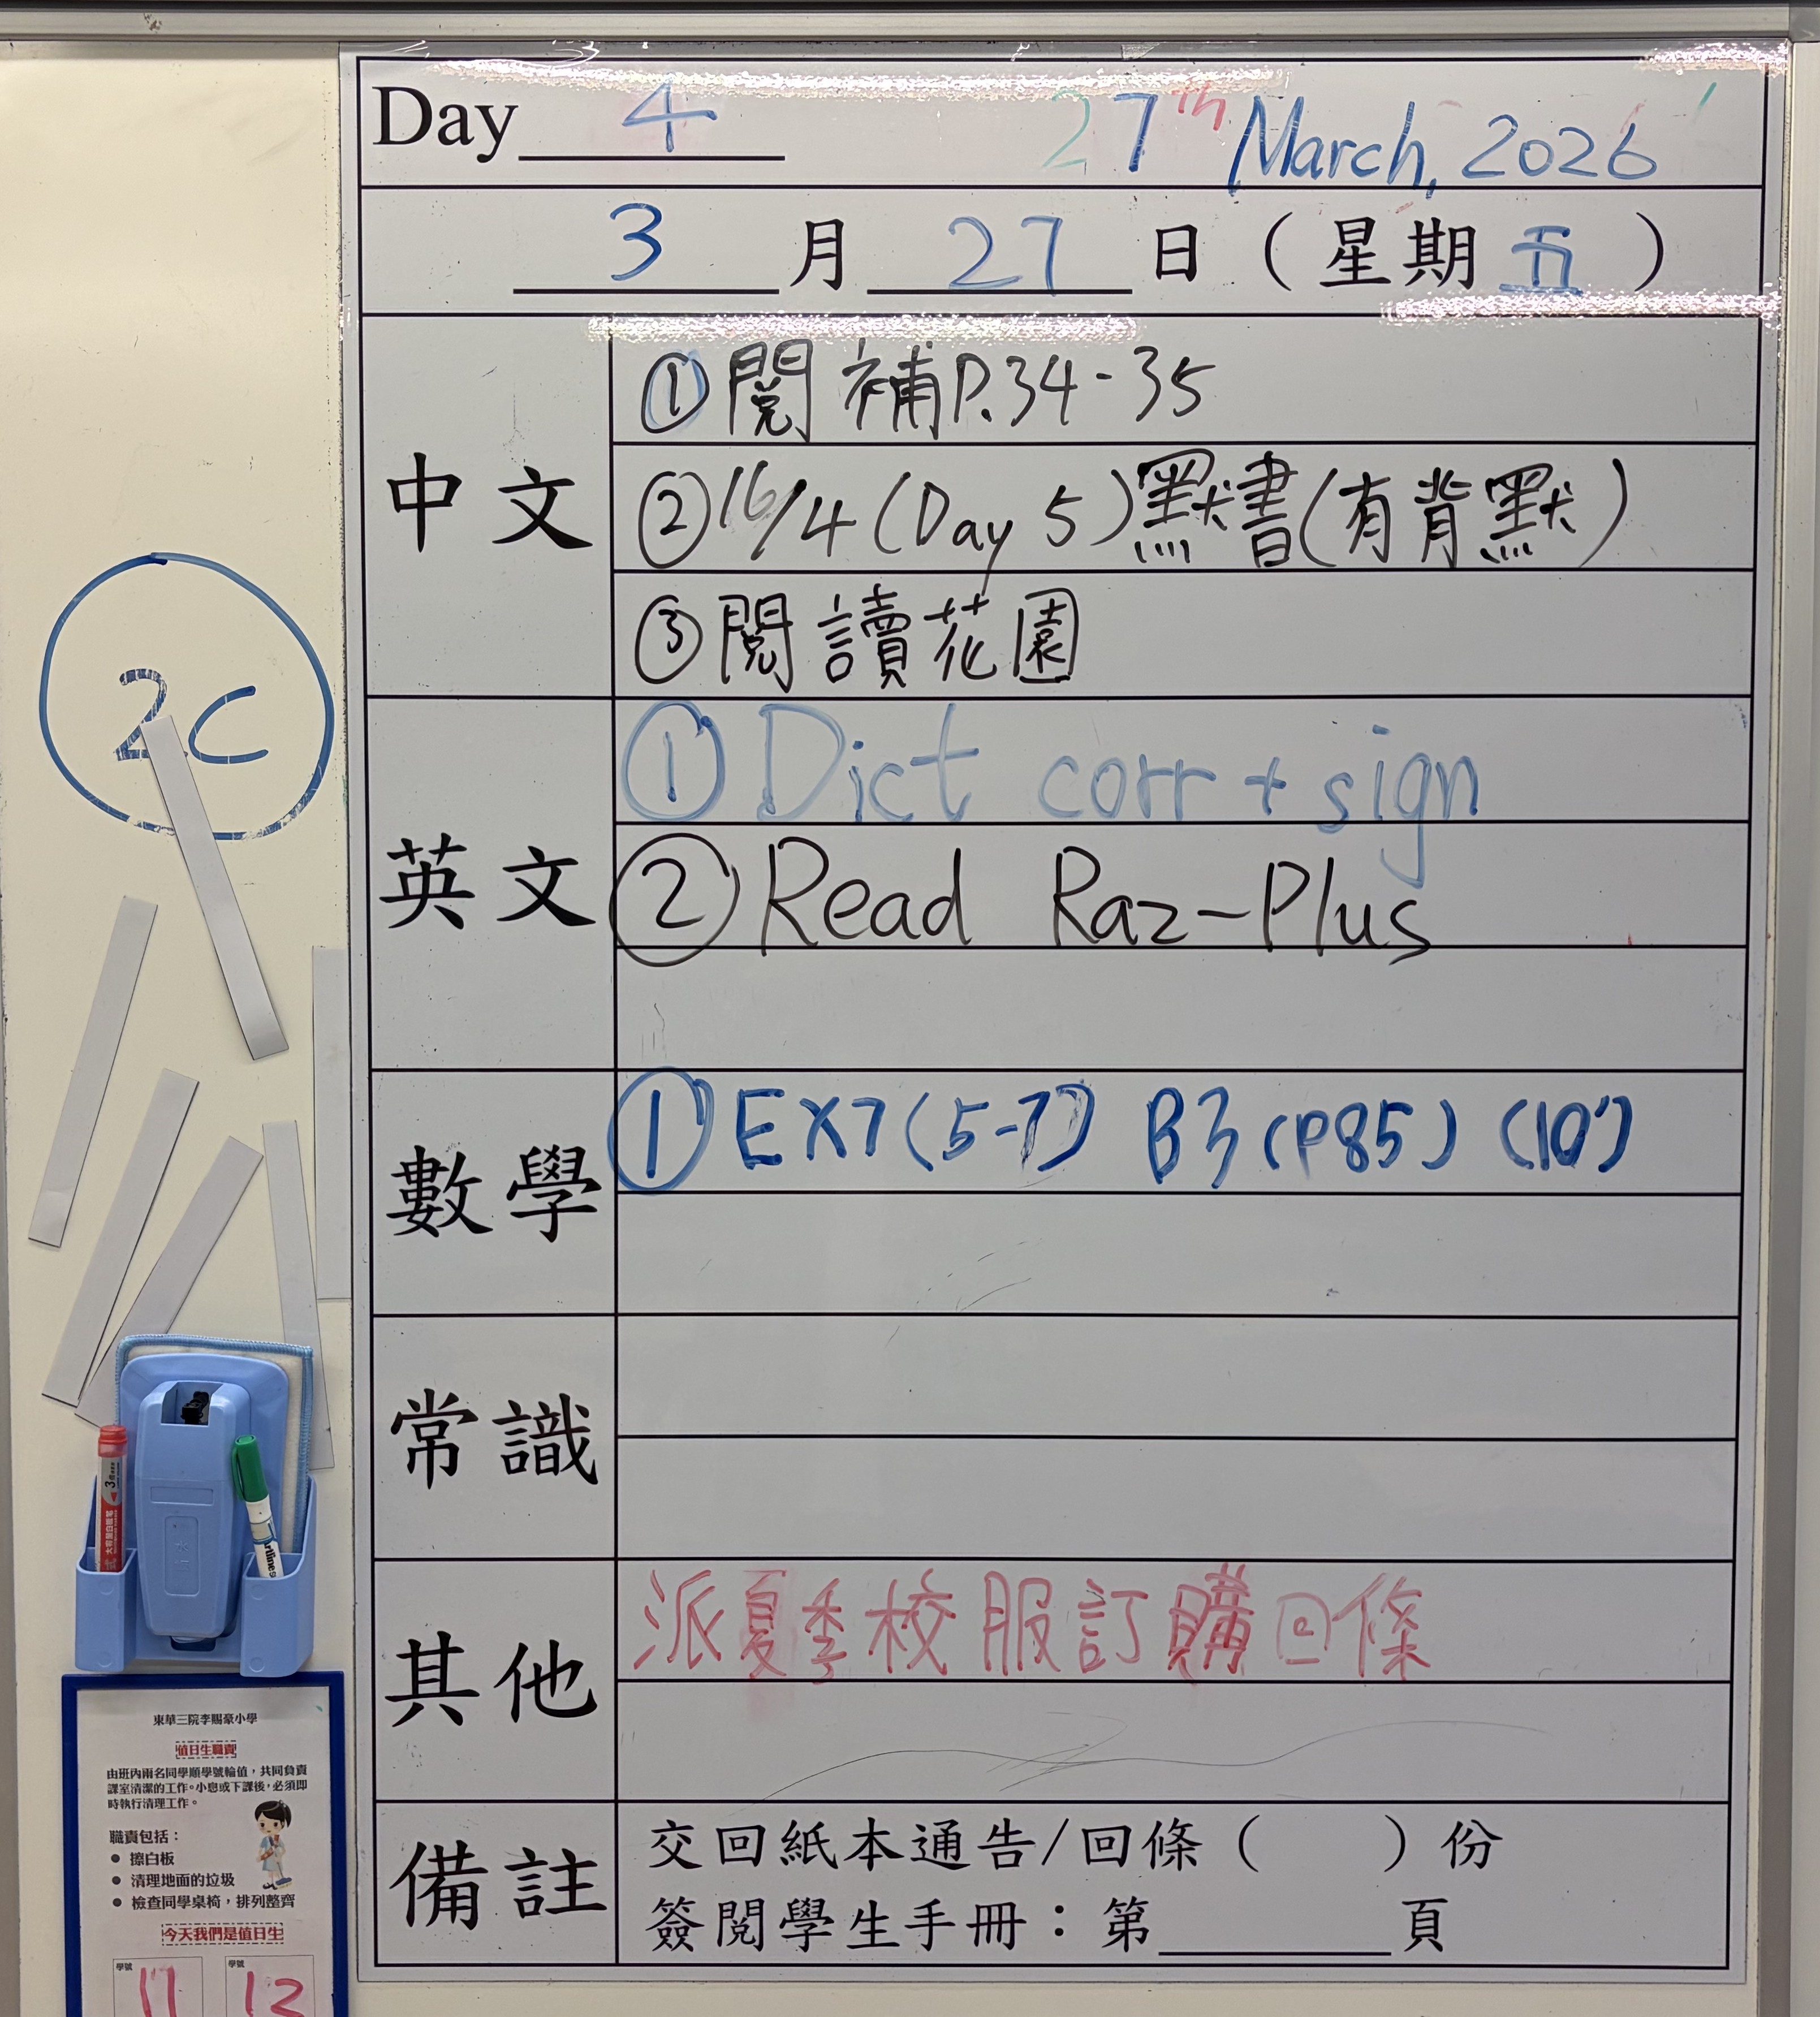 Day 4 27th March, 2026
3 月 27 日 (星期五)
中文
①閱補P.34-35
②16/4 (Day 5)默書(有背默)
③閱讀花園
英文
① Dict corr + sign
② Read Raz-Plus
數學
① EX7(5-7) B3 (P85) (10')
常識
其他
派夏季校服訂購回條
備註
交回紙本通告/回條 ( ) 份
簽閱學生手冊：第______頁
2C
東華三院李賜豪小學
值日生職責
由班內兩名同學順學號輪值，共同負責
課室清潔的工作。小息或下課後，必須即
時執行清理工作。
職責包括：
● 擦白板
● 清理地面的垃圾
● 檢查同學桌椅，排列整齊
今天我們是值日生
學號 學號
11 12